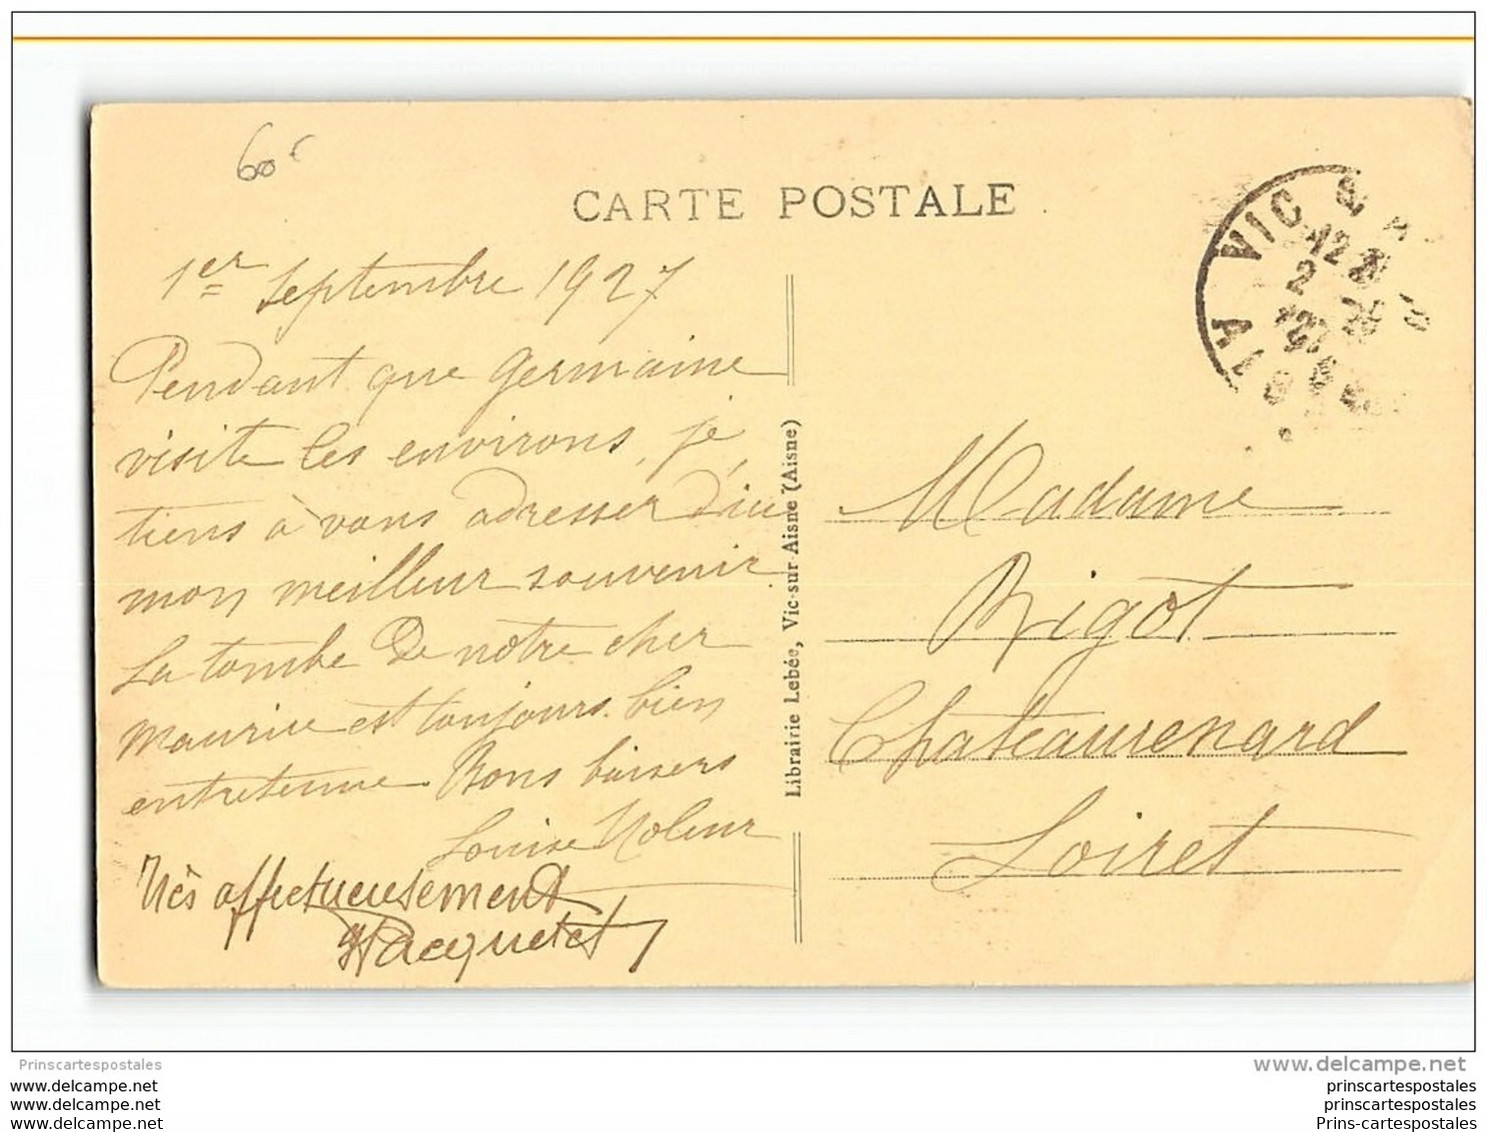 60c
CARTE POSTALE
VIC
12
2
1er septembre 1927
Pendant que Germaine
visite les environs, je
tiens à vous adresser d'ici
mon meilleur souvenir
La tombe de notre cher
Maurice est toujours bien
entretenue Bons baisers
Louise
Très affectueusement
Librairie Lebée, Vic-sur-Aisne (Aisne)
Madame
Rigot
Chateaurenard
Loiret
Prinscartespostales
www.delcampe.net
www.delcampe.net
www.delcampe.net
www.delcampe.net
prinscartespostales
prinscartespostales
Prins-cartespostales